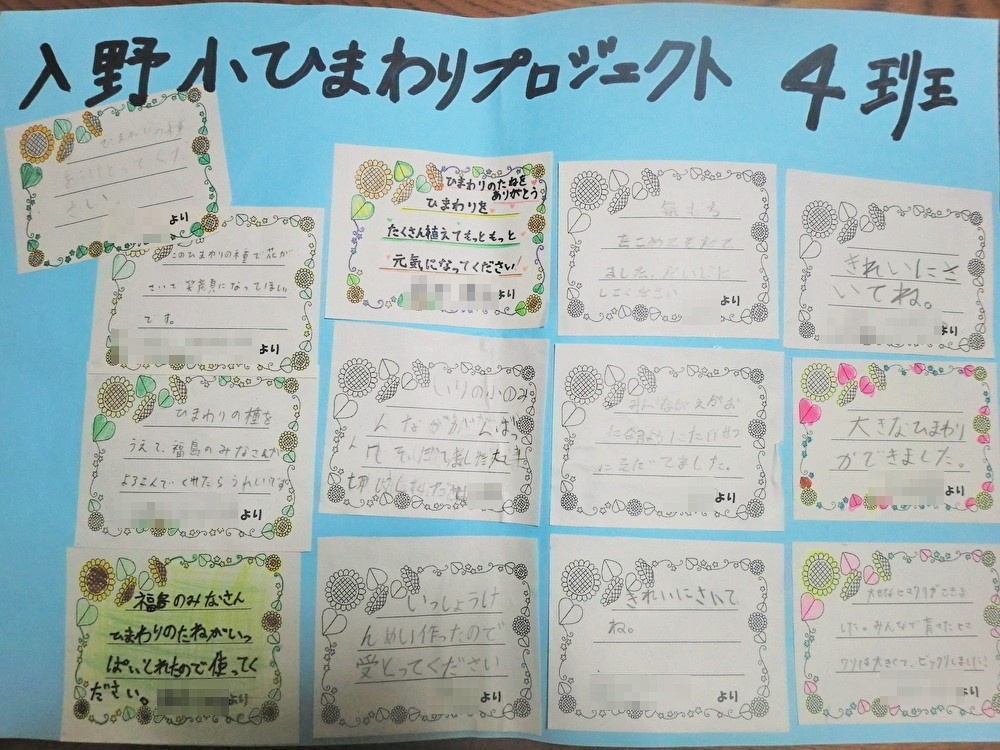 入野小ひまわりプロジェクト 4班
ひまわりの種
をうけとってくだ
さい。
より
このひまわりの種で花が
さいて笑顔になってほしい
です。
より
ひまわりの種を
うえて、福島のみなさんが
よろこんでくれたらうれしいです。
より
福島のみなさん
ひまわりのたねがいっ
ぱいとれたので使ってく
ださい。
より
ひまわりのたねを
ありがとう
ひまわりを
たくさん植えてもっともっと
元気になってください!
より
いりの小のみ
んなががんばっ
てそだてました大
切にしてください
いっしょうけ
んめい作ったので
受とってください
より
気もち
をこめてそだて
ました。だいじに
してください
より
みんながえがお
になるようにたいせつ
にそだてました。
より
きれいにさいて
ね。
より
きれいにさ
いてね。
より
大きなひまわり
ができました。
より
した。みんなで育てたヒマ
ワリは大きくて、ビックリしました!
より